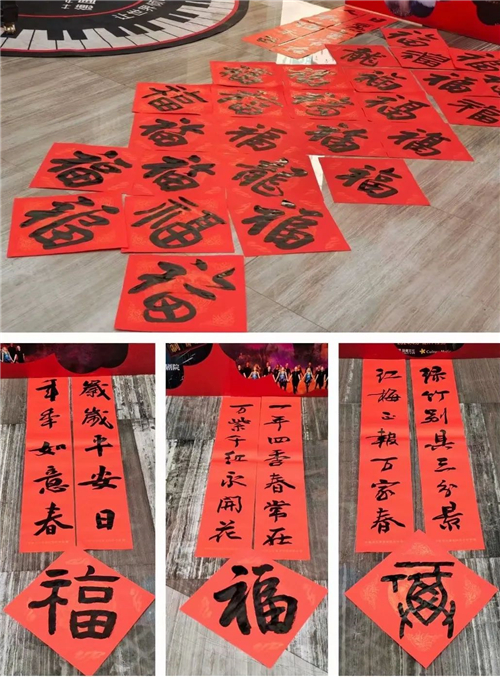 福 福 福 福
福 福 福 福
福 福 福 福
福 福 龍 福
福 福 福
福
歲歲平安日
年秊如意春
福
一年四季春常在
万紫千红永開花
福
绿竹别具三分景
红梅正報万家春